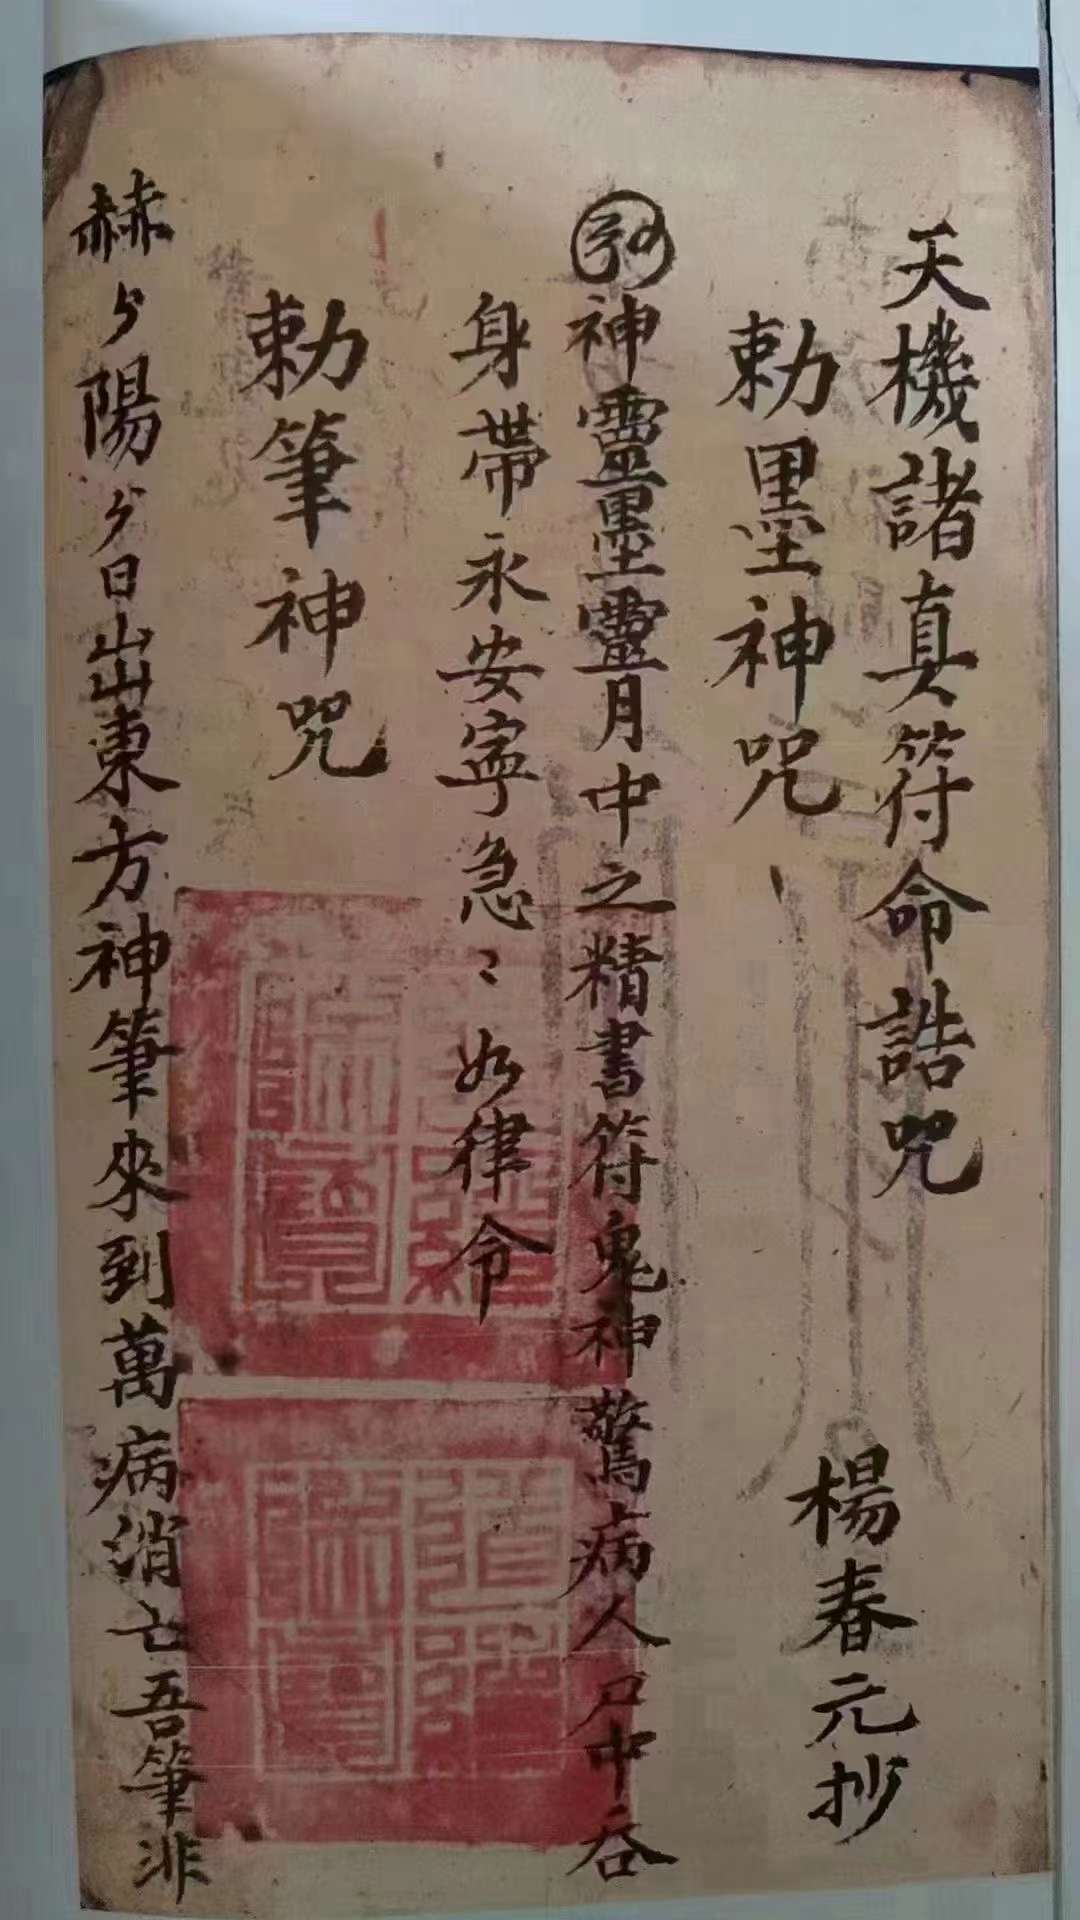 天機諸真符命誥咒
楊春元抄
勅墨神咒
神靈墨靈月中之精書符鬼神驚病人口中吞
身帶永安寧急〻如律令
勅筆神咒
赫〻陽〻日出東方神筆來到萬病消亡吾筆非